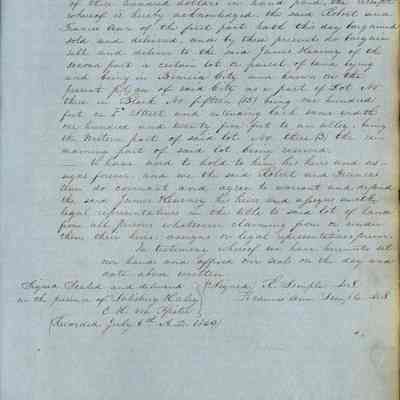 of three hundred dollars in hand paid, the receipt
whereof is hereby acknowledged the said Robert and
Frances Ann of the first part hath this day bargained
sold and delivered, and by these presents do bargain
sell and deliver to the said James Kearney of the
second part a certain lot or parcel of land lying
and being in Benicia City and known on the
present plan of said City as a part of Lot No
three in Block No fifteen (15) being one hundred
feet on F Street and extending back same width
one hundred and twenty five feet to an alley, being
the Western part of said lot No three (3) the re-
maining part of said lot being reserved.
To have and to hold to him his heirs and as-
signs forever, and we the said Robert and Frances
Ann do covenant and agree to warrant and defend
the said James Kearney his heirs and assigns and the
legal representatives in the title to said lot of land
from all persons whatsoever claiming from or under
them their heirs assigns or legal representatives forever
In testimony whereof we have hereunto set
our hands and affixed our seals on the day and
date above written
Signed Sealed and delivered (Signed) R. Semple Seal
in the presence of Salisbury Haley Frances Ann Semple Seal
E. H. Von Pfister
(Recorded July 6th A.D. 1849)